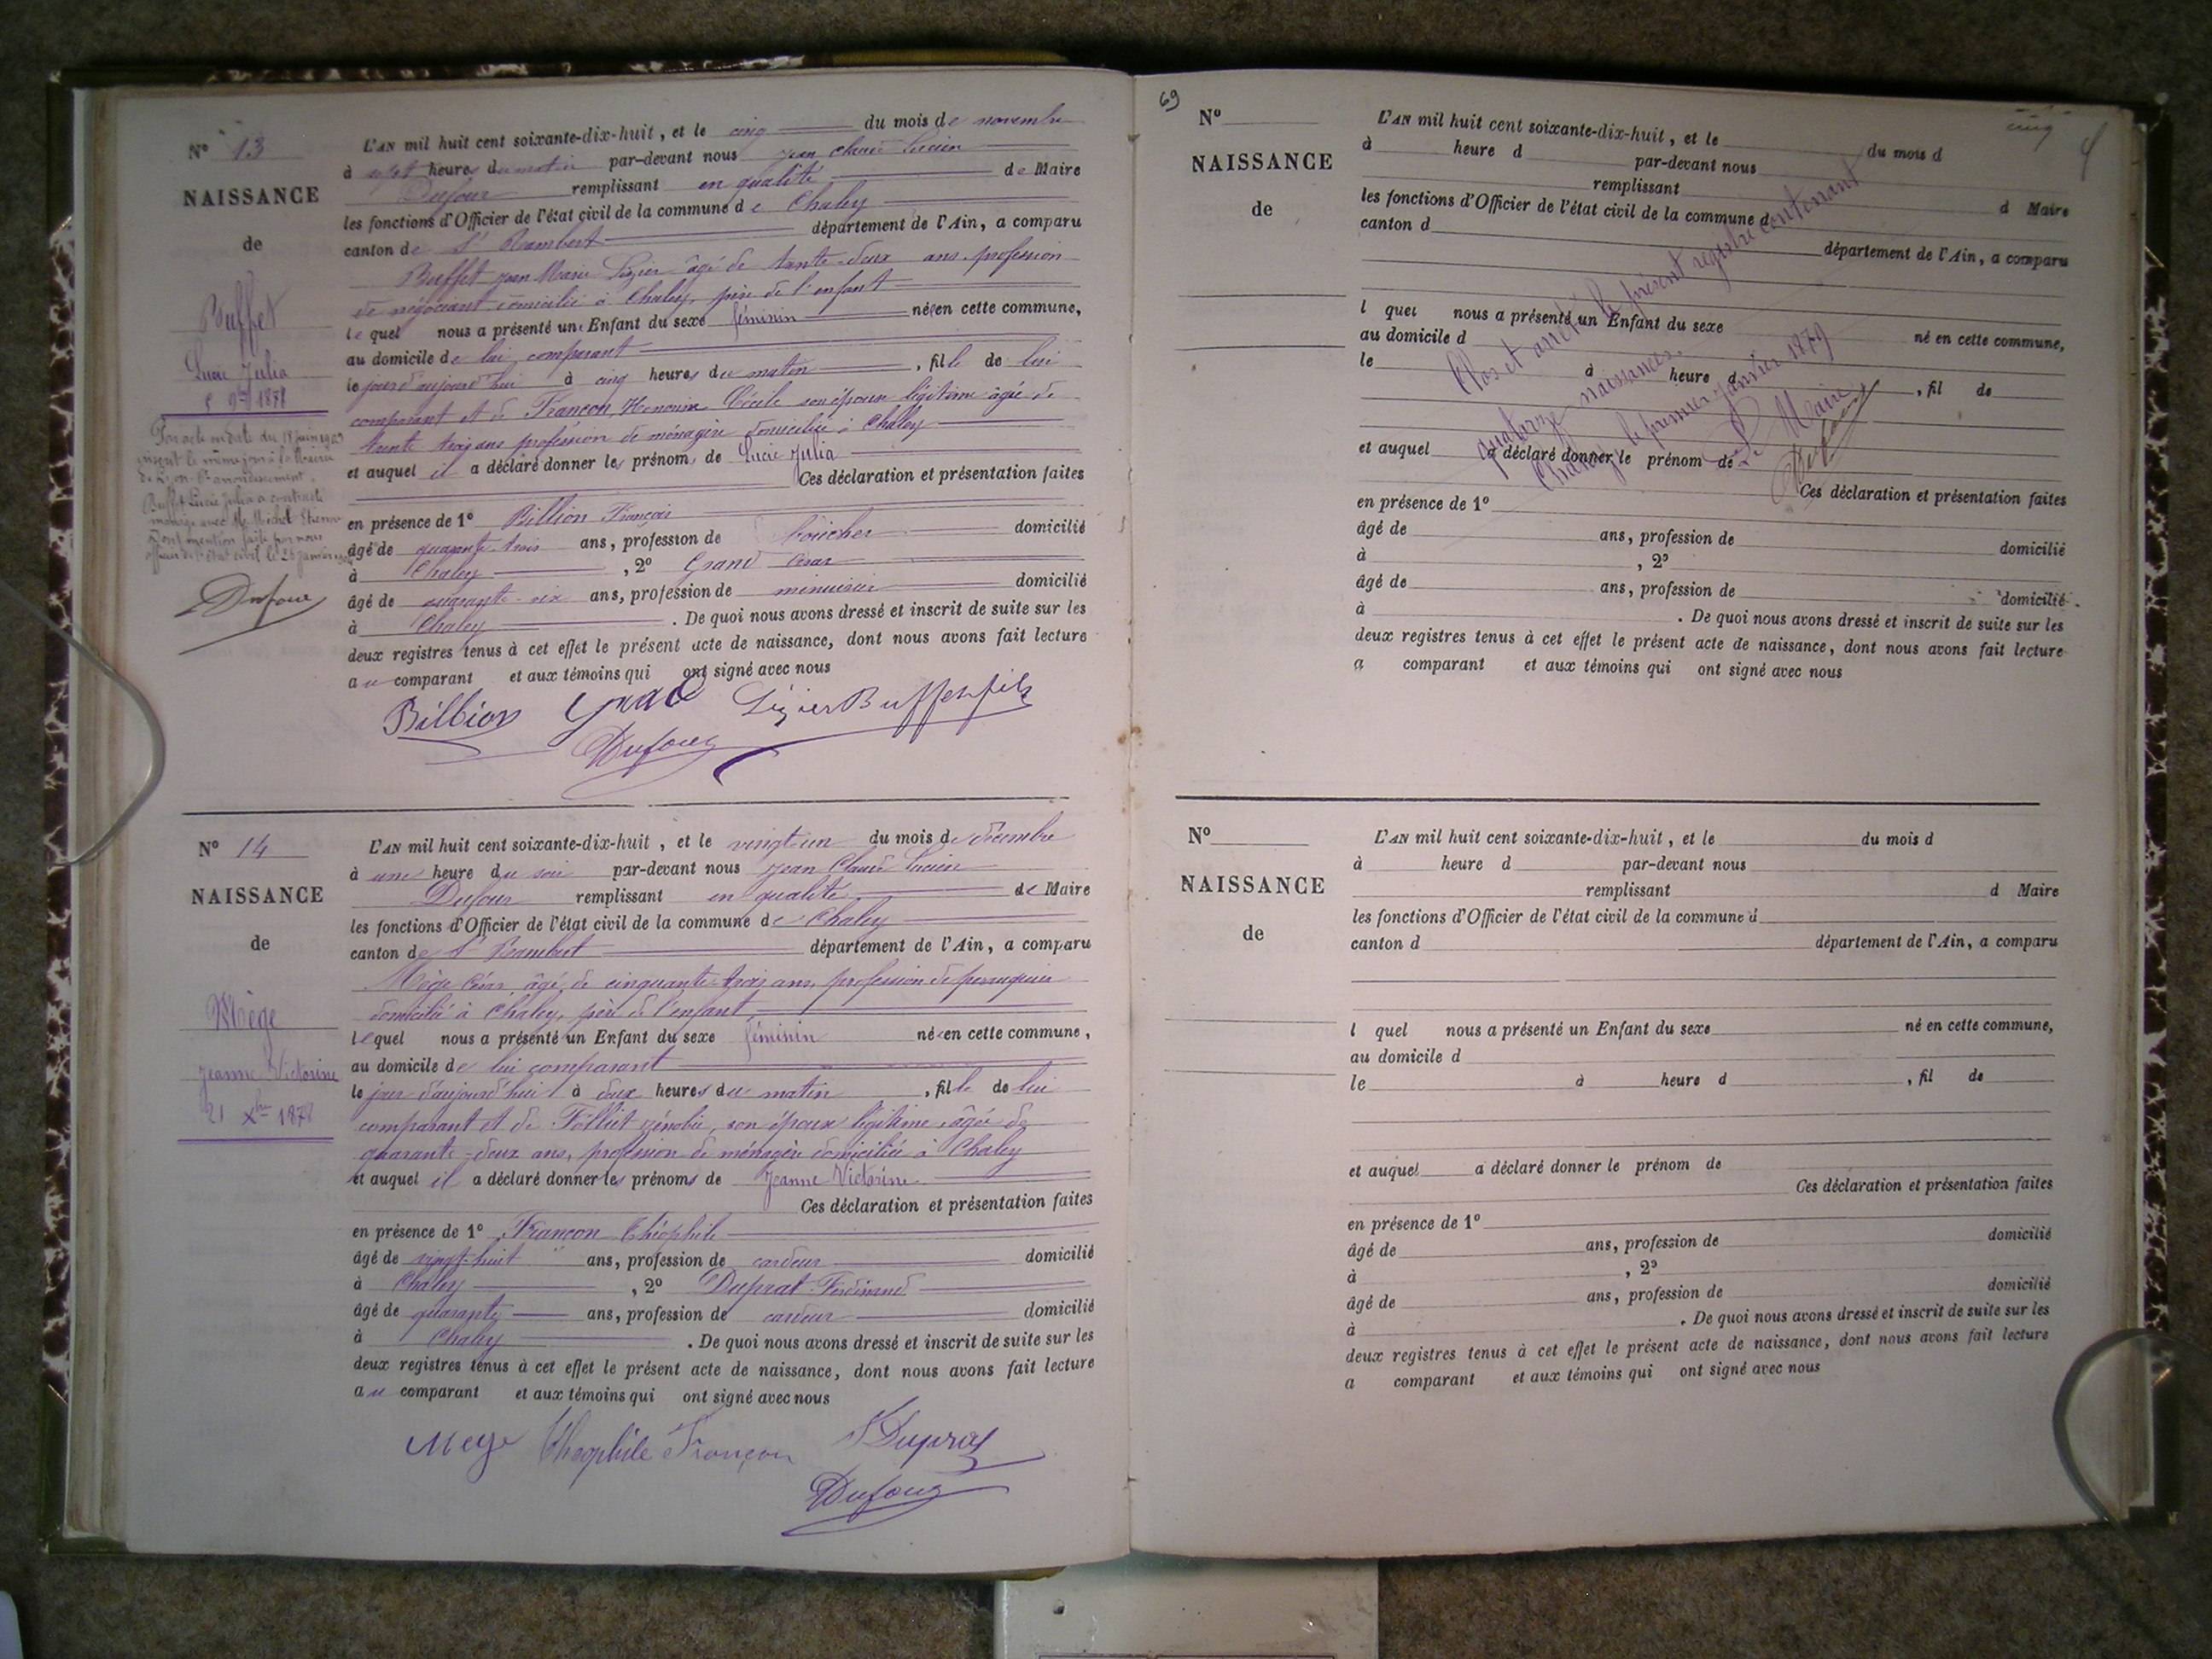 N° 13
NAISSANCE
de
Buffet
Lucie Julia
5 9bre 1878
Par acte en date du 18 juin 1923
inscrit le même jour à la Mairie
de Lyon 6e arrondissement,
Buffet Lucie Julia a contracté
mariage avec Mr Michel Etienne
Dont mention faite par nous
officier de l'état civil le 26 janvier
Dufour
L'AN mil huit cent soixante-dix-huit, et le cinq du mois de novembre
à sept heures du matin par-devant nous Jean Claude Lucien
Dufour remplissant en qualité de Maire
les fonctions d'Officier de l'état civil de la commune de Chaley
canton de St Rambert département de l'Ain, a comparu
Buffet Jean Marie Lézier âgé de trente-deux ans, profession
de négociant domicilié à Chaley, père de l'enfant
lequel nous a présenté un Enfant du sexe féminin née en cette commune,
au domicile de lui comparant
le jour d'aujourd'hui à cinq heures du matin, fille de lui
comparant et de Françon Honorine Cécile son épouse légitime âgée de
trente trois ans profession de ménagère domiciliée à Chaley
et auquel il a déclaré donner les prénoms de Lucie Julia
Ces déclaration et présentation faites
en présence de 1° Billion François
âgé de quarante-trois ans, profession de boucher domicilié
à Chaley, 2° Grand César
âgé de quarante-six ans, profession de menuisier domicilié
à Chaley. De quoi nous avons dressé et inscrit de suite sur les
deux registres tenus à cet effet le présent acte de naissance, dont nous avons fait lecture
au comparant et aux témoins qui ont signé avec nous
Billion Grand Lézier Buffet fils
Dufour
N° 14
NAISSANCE
de
Mège
Jeanne Victorine
21 Xbre 1878
L'AN mil huit cent soixante-dix-huit, et le vingt-un du mois de décembre
à une heure du soir par-devant nous Jean Claude Lucien
Dufour remplissant en qualité de Maire
les fonctions d'Officier de l'état civil de la commune de Chaley
canton de St Rambert département de l'Ain, a comparu
Mège César âgé de cinquante-trois ans, profession de perruquier
domicilié à Chaley, père de l'enfant
lequel nous a présenté un Enfant du sexe féminin née en cette commune,
au domicile de lui comparant
le jour d'aujourd'hui à deux heures du matin, fille de lui
comparant et de Folliet Zénobie, son épouse légitime, âgée de
quarante-deux ans, profession de ménagère domiciliée à Chaley
et auquel il a déclaré donner les prénoms de Jeanne Victorine
Ces déclaration et présentation faites
en présence de 1° Françon Théophile
âgé de vingt-huit ans, profession de cardeur domicilié
à Chaley, 2° Duprat Ferdinand
âgé de quarante ans, profession de cardeur domicilié
à Chaley. De quoi nous avons dressé et inscrit de suite sur les
deux registres tenus à cet effet le présent acte de naissance, dont nous avons fait lecture
au comparant et aux témoins qui ont signé avec nous
Mège Théophile Françon F Duprat
Dufour
69
cinq
N°
NAISSANCE
de
L'AN mil huit cent soixante-dix-huit, et le du mois d
à heure d par-devant nous
remplissant d Maire
les fonctions d'Officier de l'état civil de la commune d
canton d département de l'Ain, a comparu
l quel nous a présenté un Enfant du sexe né en cette commune,
au domicile d
le à heure d, fil de
et auquel a déclaré donner le prénom de
Ces déclaration et présentation faites
en présence de 1°
âgé de ans, profession de domicilié
à, 2°
âgé de ans, profession de domicilié
à. De quoi nous avons dressé et inscrit de suite sur les
deux registres tenus à cet effet le présent acte de naissance, dont nous avons fait lecture
a comparant et aux témoins qui ont signé avec nous
Clos et arrêté le présent registre contenant
quatorze naissances.
Chaley le premier janvier 1879
Le Maire
Dufour
N°
NAISSANCE
de
L'AN mil huit cent soixante-dix-huit, et le du mois d
à heure d par-devant nous
remplissant d Maire
les fonctions d'Officier de l'état civil de la commune d
canton d département de l'Ain, a comparu
l quel nous a présenté un Enfant du sexe né en cette commune,
au domicile d
le à heure d, fil de
et auquel a déclaré donner le prénom de
Ces déclaration et présentation faites
en présence de 1°
âgé de ans, profession de domicilié
à, 2°
âgé de ans, profession de domicilié
à. De quoi nous avons dressé et inscrit de suite sur les
deux registres tenus à cet effet le présent acte de naissance, dont nous avons fait lecture
a comparant et aux témoins qui ont signé avec nous